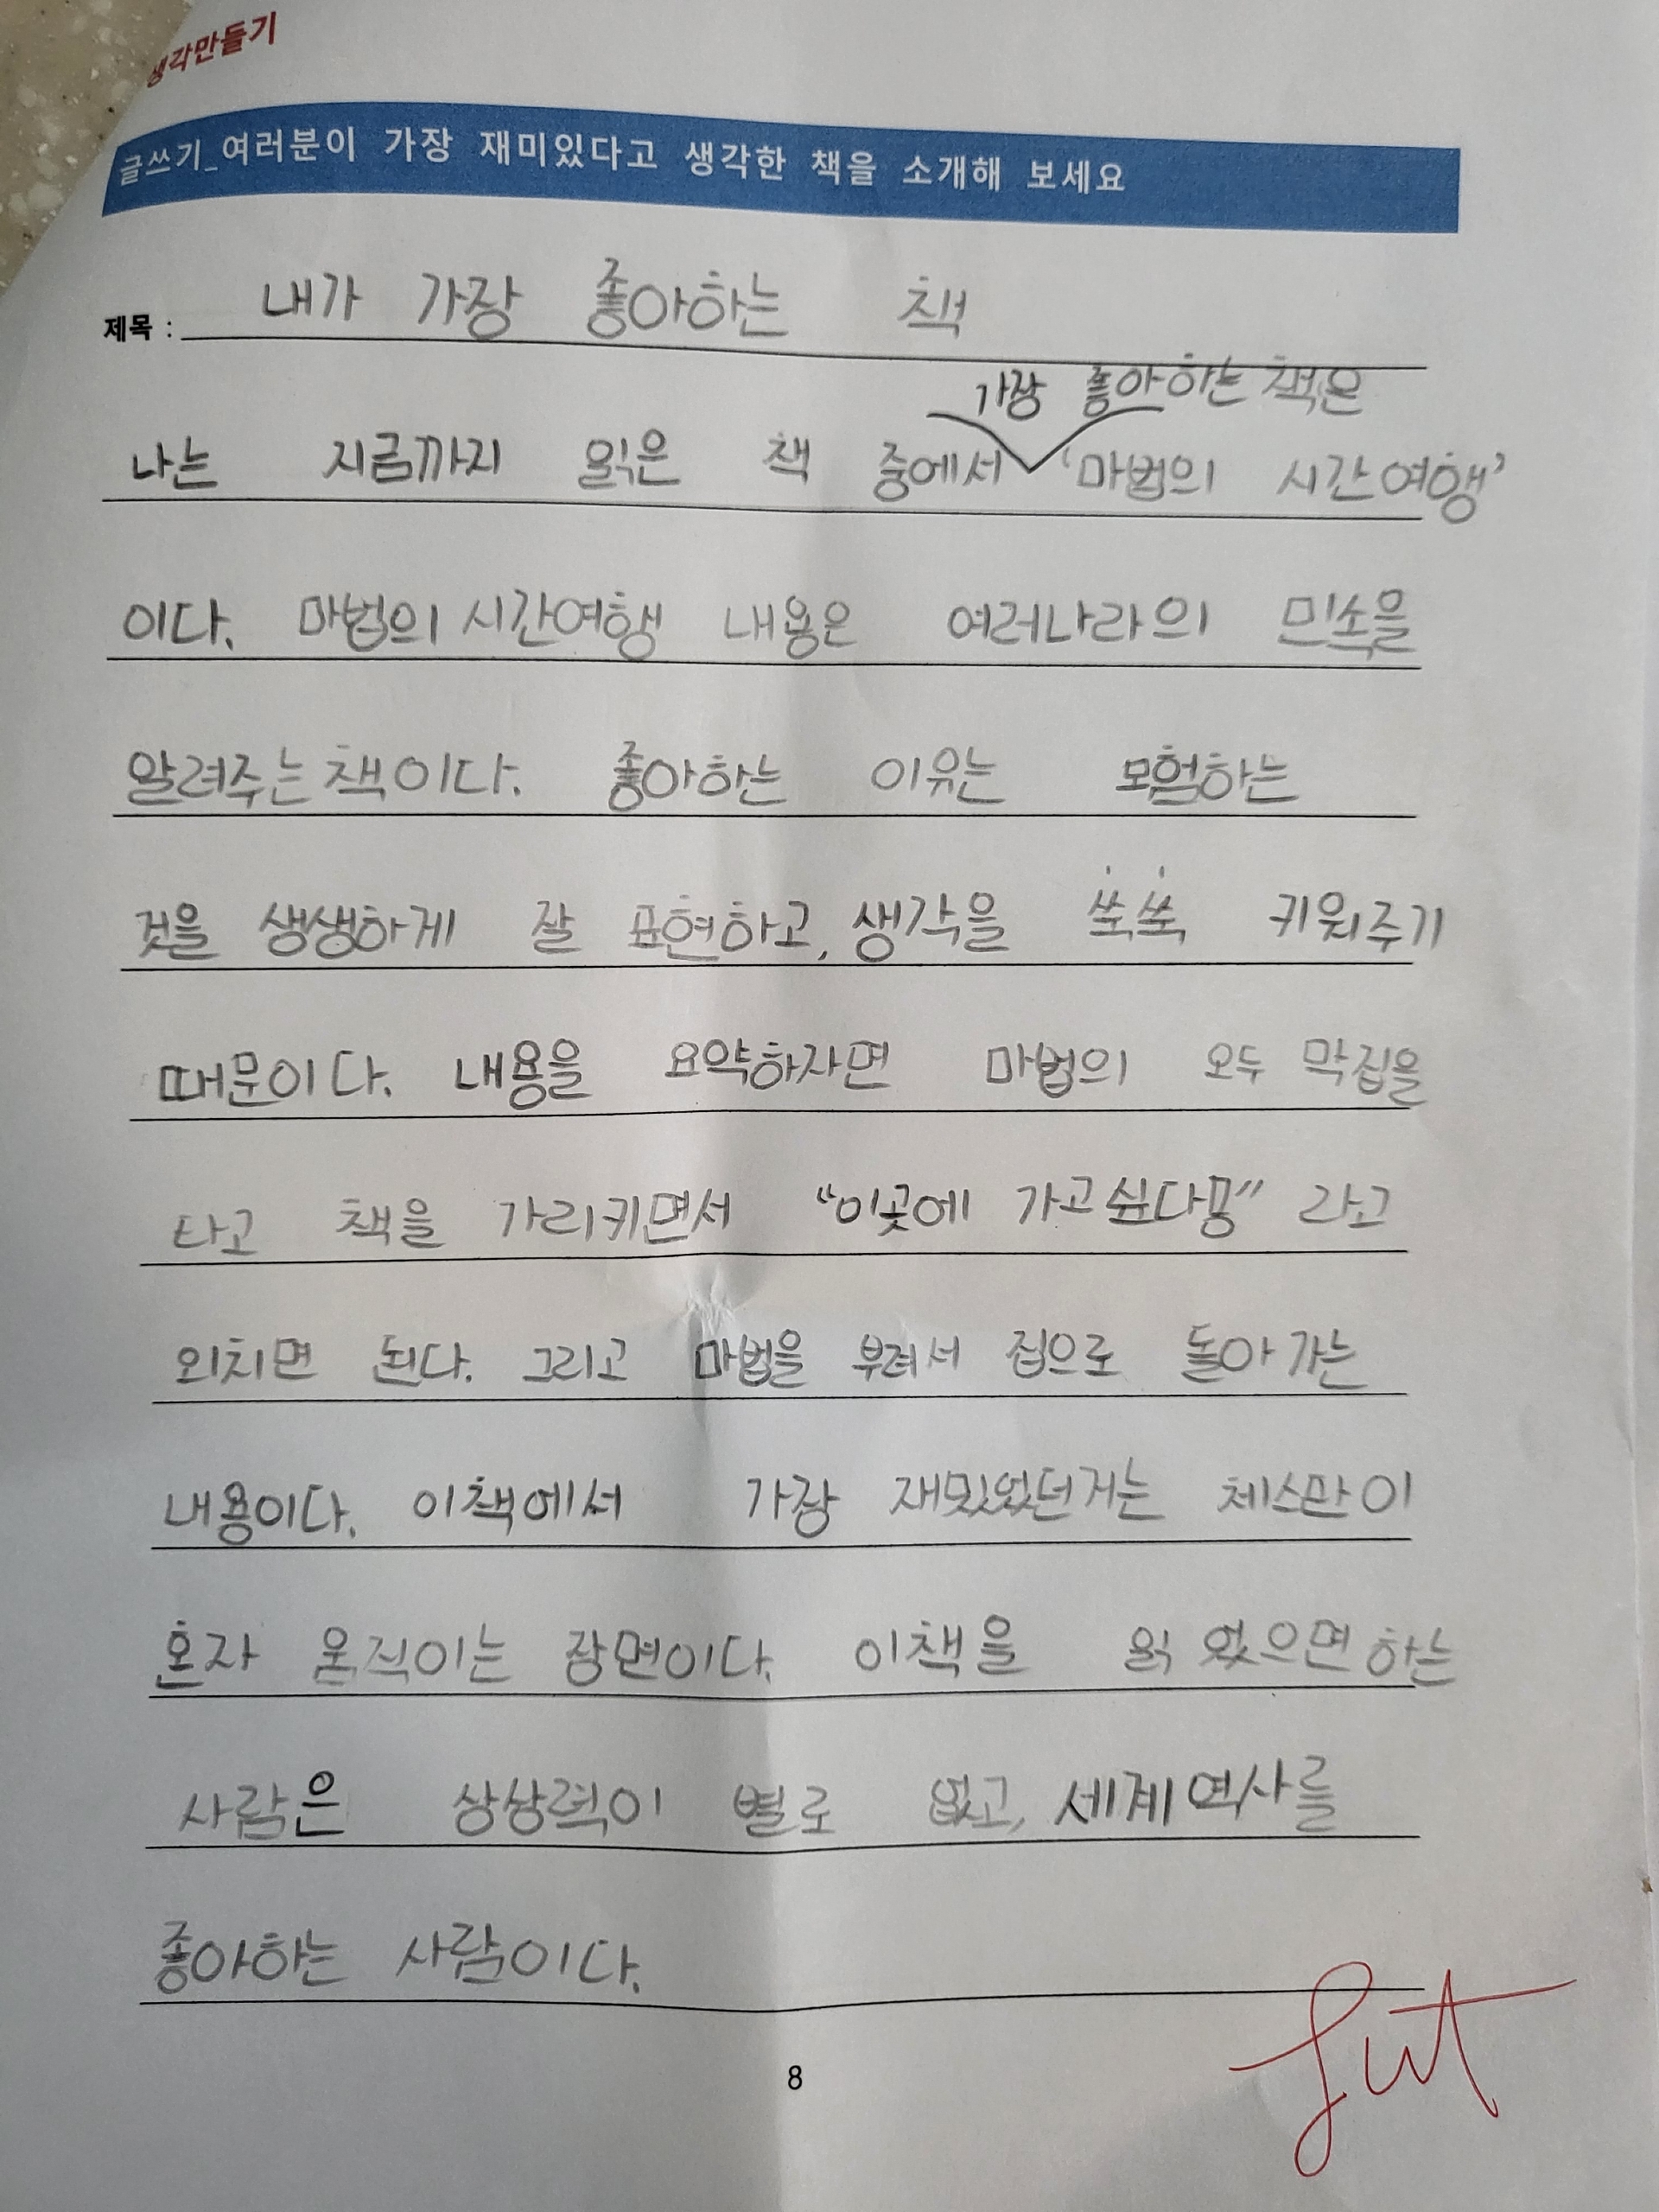 생각만들기
글쓰기_여러분이 가장 재미있다고 생각한 책을 소개해 보세요
제목 : 내가 가장 좋아하는 책
가장 좋아하는 책은
나는 지금까지 읽은 책 중에서 '마법의 시간여행'
이다. 마법의 시간여행 내용은 여러나라의 민속을
알려주는 책이다. 좋아하는 이유는 모험하는
것을 생생하게 잘 표현하고, 생각을 쑥쑥 키워주기
때문이다. 내용을 요약하자면 마법의 오두 막집을
타고 책을 가리키면서 "이곳에 가고싶다믕" 라고
외치면 된다. 그리고 마법을 부려서 집으로 돌아 가는
내용이다. 이책에서 가장 재밌었던거는 체스만이
혼자 움직이는 장면이다. 이책을 읽 었으면 하는
사람은 상상력이 별로 없고, 세계역사를
좋아하는 사람이다.
8